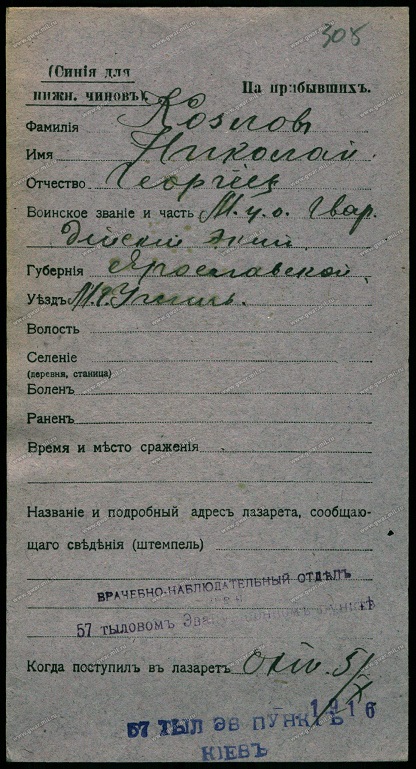 308
(Синія для
нижн. чиновъ).
На прибывшихъ.
Фамилія Козловъ
Имя Николай
Отчество Георгіев
Воинское званіе и часть М. у. о. Гвар.
дейскій Экип.
Губернія Ярославской
Уѣздъ М. Г. Угличь.
Волость
Селеніе
(деревня, станица)
Боленъ
Раненъ
Время и мѣсто сраженія
Названіе и подробный адресъ лазарета, сообщаю-
щаго свѣдѣнія (штемпель)
ВРАЧЕБНО-НАБЛЮДАТЕЛЬНЫЙ ОТДѢЛЪ
57 тыловомъ
Когда поступилъ въ лазаретъ 5/X
1916
57 ТЫЛ ЭВ ПУНКТЪ
КІЕВЪ